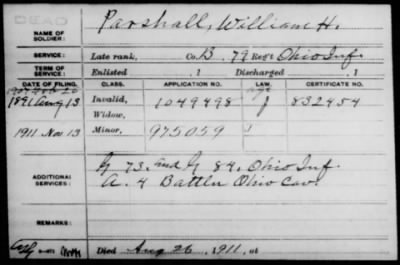 DEAD
NAME OF SOLDIER: Parshall, William H.
SERVICE: Late rank, Co. B, 79 Reg't Ohio Inf.
TERM OF SERVICE: Enlisted , 1 Discharged , 1
DATE OF FILING. CLASS. APPLICATION NO. LAW. CERTIFICATE NO.
1891 Aug 13 Invalid, 1049498 J 832454
Widow,
1911 Nov 13 Minor, 975059
ADDITIONAL SERVICES: G 73. and G 84. Ohio Inf.
A. 4 Battln Ohio Cav.
REMARKS:
Died Aug 26, 1911, at